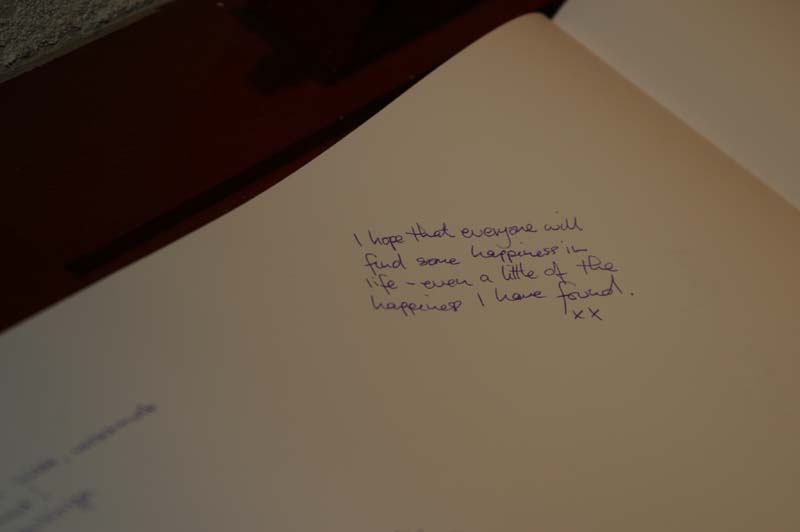 I hope that everyone will
find some happiness in
life - even a little of the
happiness I have found.
xx